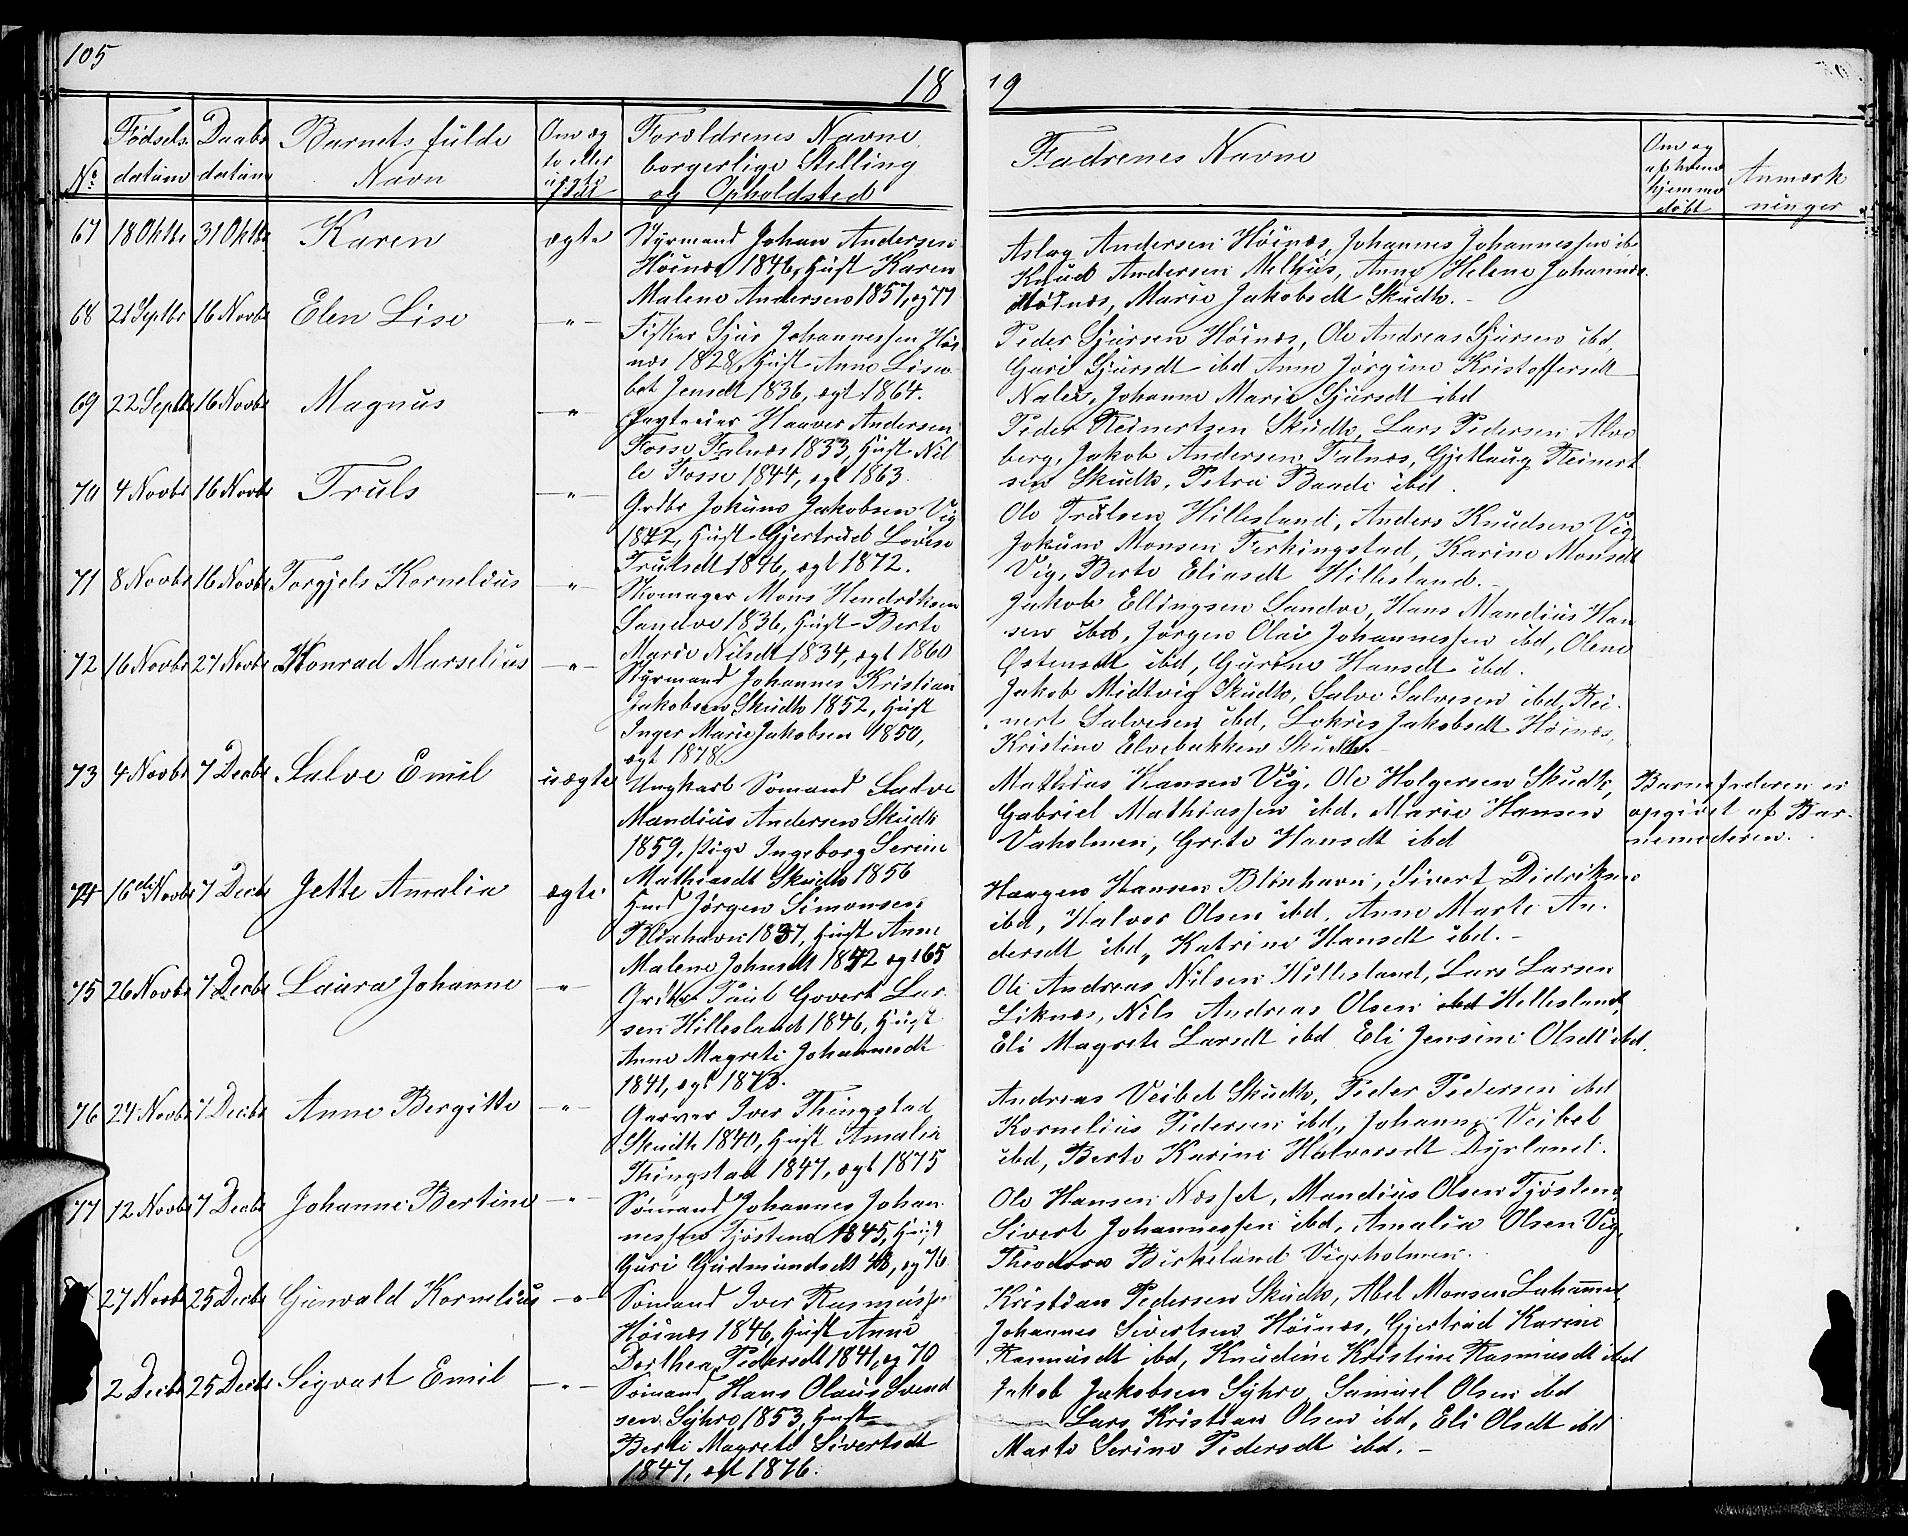 105
18 79
No
Fødsels
datum
Daabs
datum
Barnets fulde
Navn
Om æg
te eller
uægte
født
Forældrenes Navne
borgerlige Stilling
og Opholdsted
Fadrenes Navne
Om og
hjemme
døbt
Anmærk
ninger
67 18 Oktbr 31 Oktbr Karen ægte
Styrmand Johan Andersen
Høinæs 1846, Hust Karen
Malene Andersen 1857, eg 77
Aslag Andersen Høinæs, Johannes Johannessen ib
Knud Andersen Melhus, Anne Helene Johannes
Høinæs, Marie Jakobsdt Skudh.
68 21 Septbr 16 Novbr Elen Lise -"-
Fisker Sjur Johannessen Høi
næs 1828, Hust Anne Lisa-
bet Jensdt 1836, egt 1864.
Peder Sjursen Høinæs, Ole Andreas Sjursen ibd,
Guri Sjursdt ibd Anne Jørgine Kristoffersdt
Nales, Johanne Marie Sjursdt ibd
69 22 Septbr 16 Novbr Magnus -"-
Haaver Andersen
Fosse Falnæs 1833, Hust Nil-
le Fosse 1844, egt 1863.
Peder Reinertsen Skudh, Lars Pedersen Alve
berg, Jakob Andersen Falnæs, Gjetlaug Reinert
sen Skudh, Petra Baade ibd.
70 4 Novbr 16 Novbr Truls -"-
Grdbr Jokum Jakobsen Vig
1842, Hust Gjertrud Lovise
Trulsdt 1846, egt 1872.
Ole Trulsen Hillesland, Anders Knudsen Vig,
Jokum Monsen Ferkingstad, Karine Monsdt
Vig, Berte Eliasdt Hillesland.-
71 8 Novbr 16 Novbr Torgjels Kornelius -"-
Skomager Mons Hendriksen
Sandve 1836, Hust Berte
Marie Nilsdt 1834, egt 1860
Jakob Ellingsen Sandve, Hans Mandius Han
sen ibd, Jørgen Olai Johannessen ibd, Olene
Østensdt ibd, Gurine Hansdt ibd.
72 16 Novbr 27 Novbr Konrad Marselius -"-
Styrmand Johannes Kristian
Jakobsen Skudh 1852, Hust
Inger Marie Jakobsen 1850,
egt 1878.
Jakob Midtvig Skudh, Salve Salvesen ibd, Rei-
nert Salvesen ibd, Lokris Jakobsdt Høinæs,
Kristine Elvebakken Skudh.-
73 4 Novbr 7 Decbr Salve Emil uægte
Ungkarl Sømand Salve
Mandius Andersen Skudh
1859, pige Ingeborg Serine
Mathiasdt Skudh 1856
Mathias Hansen Vig, Ole Holgersen Skudh,
Gabriel Mathiassen ibd, Marie Hansen
Vaholmen, Grete Hansdt ibd
Barnefaderen er
opgivet af Bar-
nemoderen.
74 16de Novbr 7 Decbr Jette Amalia ægte
Hmd Jørgen Simonsen
Blixhavn 1837, Hust Anne
Malene Johnsdt 1842 egt 65
Haagen Hansen Blixhavn, Sivert Didriksen
ibd, Halvor Olsen ibd, Anne Marte An-
dersdt ibd, Katrine Hansdt ibd.-
75 26 Novbr 7 Decbr Laura Johanne -"-
Grdbr Paul Govert Lar
sen Hillesland 1846, Hust
Anne Magrete Johannesdt
1841, egt 1873.
Ole Andreas Nilsen Hillesland, Lars Larsen
Liknæs, Nils Andreas Olsen ibd Hillesland,
Eli Magrete Larsdt ibd Eli Jensine Olsdt ibd.
76 24 Novbr 7 Decbr Anne Bergitte -"-
Garver Iver Thingstad
Skudh 1840, Hust Amalia
Thingstad 1847, egt 1875
Andreas Veibel Skudh, Peder Pedersen ibd
Kornelius Pedersen ibd, Johanne Veibel
ibd, Berte Karine Halvorsdt Dyrland.
77 12 Novbr 7 Decbr Johanne Bertine -"-
Sømand Johannes Johan
nessen Tjøsten 1845, Hust
Guri Gudmundsdt 48, eg 76
Ole Hansen Næsset, Mandius Olsen Tjøsten,
Sivert Johannessen ibd, Amalia Olsen Vig,
Theodora Birkeland Vigeholmen.
27 Novbr 25 Decbr Gunvald Kornelius -"-
Sømand Iver Rasmussen
Høinæs 1846, Hust Anne
Dorthea Pedersdt 1841, eg 70
Kristian Pedersen Skudh, Abel Monsen Lahamet,
Johannes Sivertsen Høinæs, Gjertrud Karine
Rasmusdt ibd, Knudine Kristine Rasmusdt ibd
2 Decbr 25 Decbr Sigvart Emil -"-
Sømand Hans Olaus Svend
sen Syhro 1853, Hust
Berte Magrete Sivertsdt
1847, egt 1876.
Jakob Jakobsen Syhro, Samuel Olsen ibd
Lars Kristian Olsen ibd, Eli Olsdt ibd
Marte Serine Pedersdt ibd.-